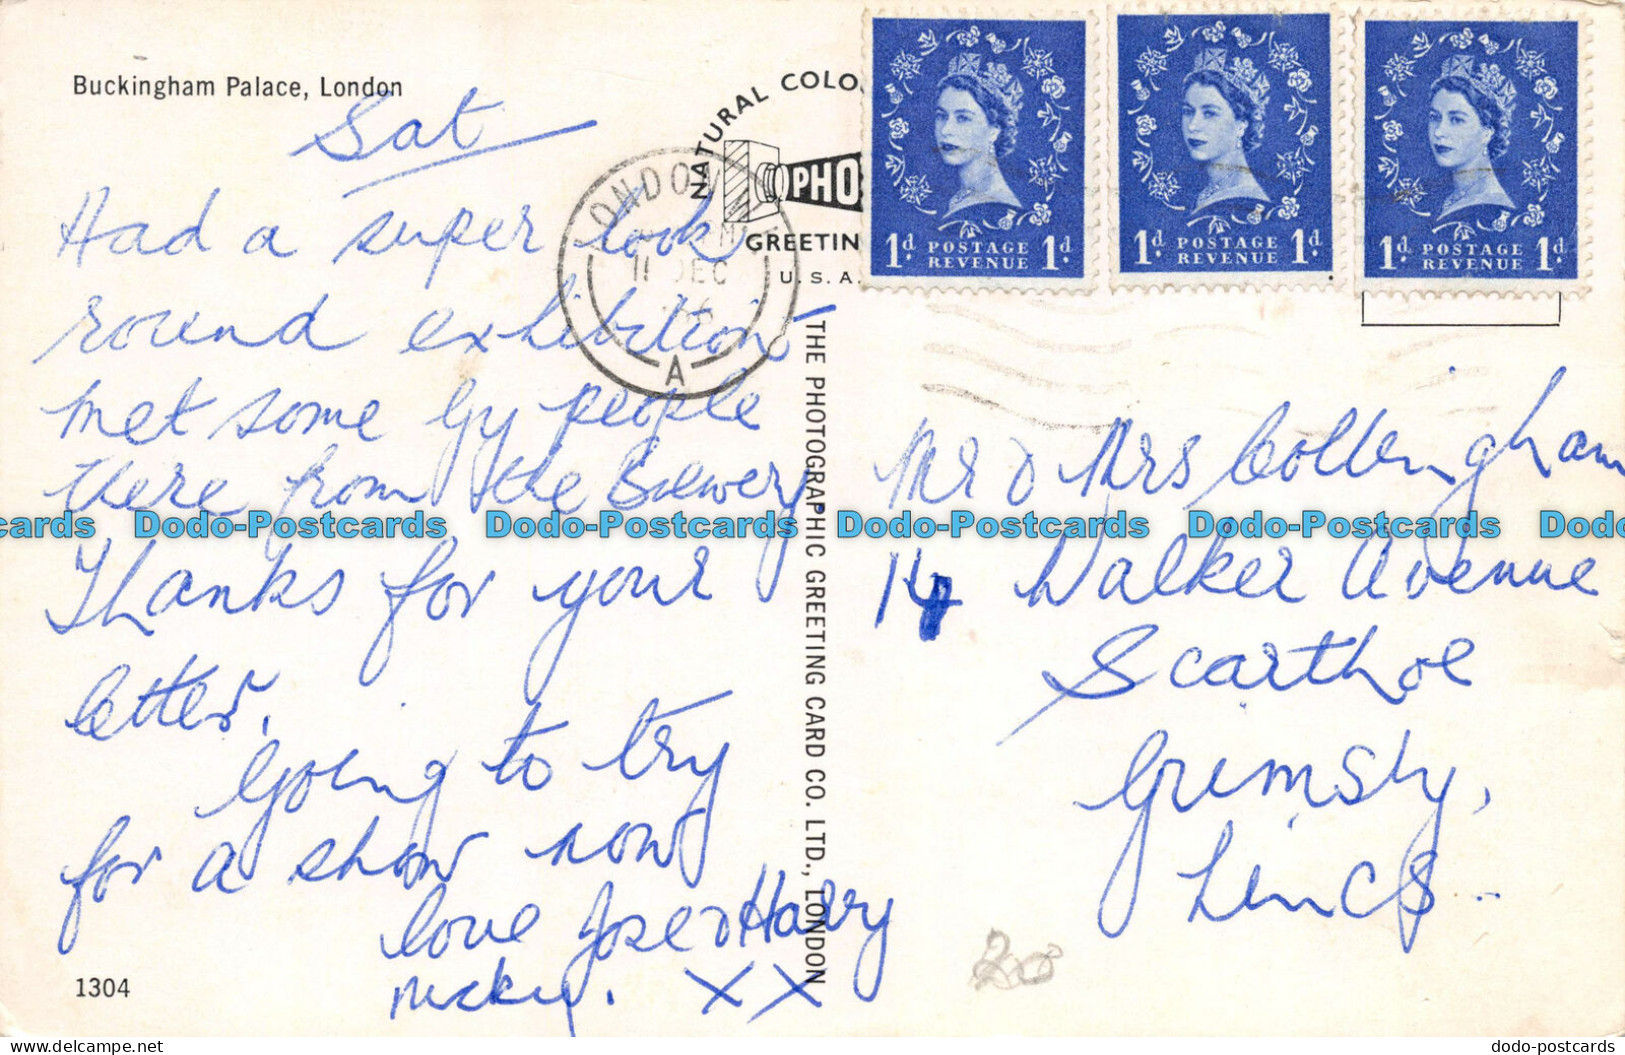 Buckingham Palace, London
Sat
Had a super look
round exhibition
met some Gy people
there from the Brewery
Thanks for your
letter.
Going to try
for a show now
love Jose & Harry
Nicky. XX
1304
NATURAL COLO
PHO
GREETIN
U.S.A.
LONDON
11 DEC
A
THE PHOTOGRAPHIC GREETING CARD CO. LTD., LONDON
1d POSTAGE REVENUE 1d
1d POSTAGE REVENUE 1d
1d POSTAGE REVENUE 1d
Mr & Mrs Collingham
14 Walker Avenue
Scarthoe
Grimsby,
Lincs
20
cards Dodo-Postcards Dodo-Postcards Dodo-Postcards Dodo-Postcards Dodo
dodo-postcards